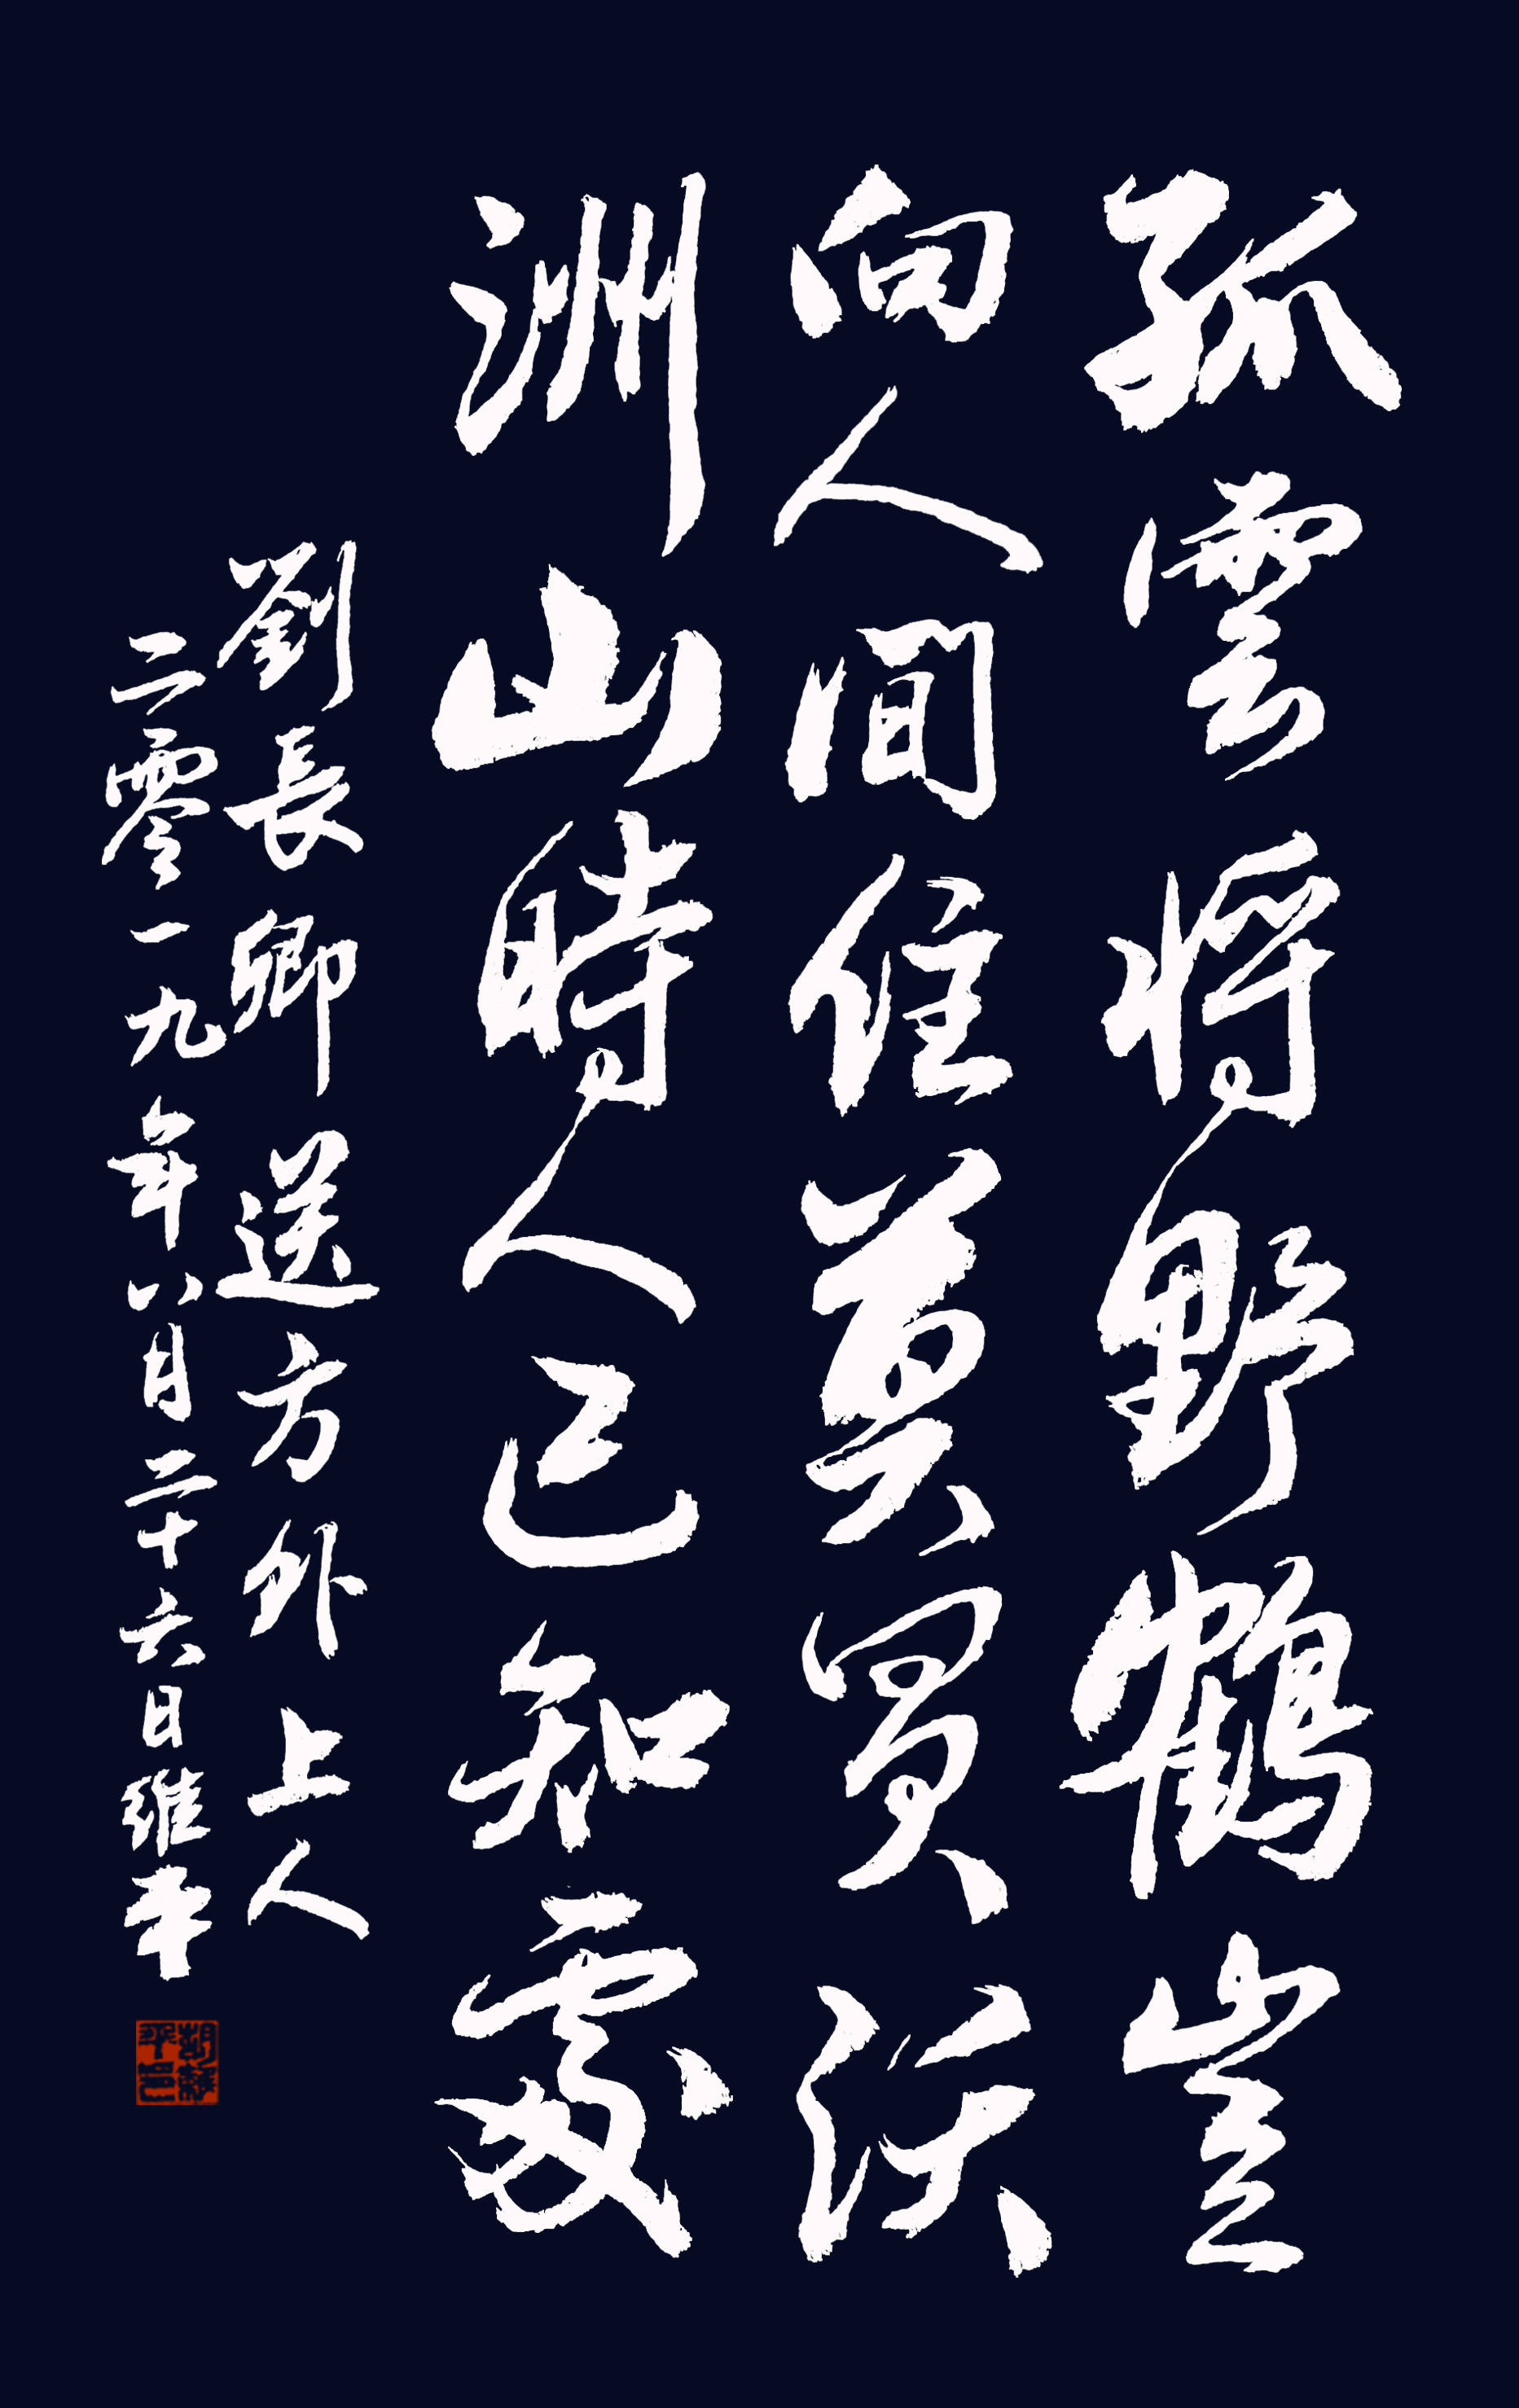 孤雲將野鶴豈
向人間住莫買沃
洲山時人已知處
劉長卿 送方外 上人
二零一九年八月二十六日